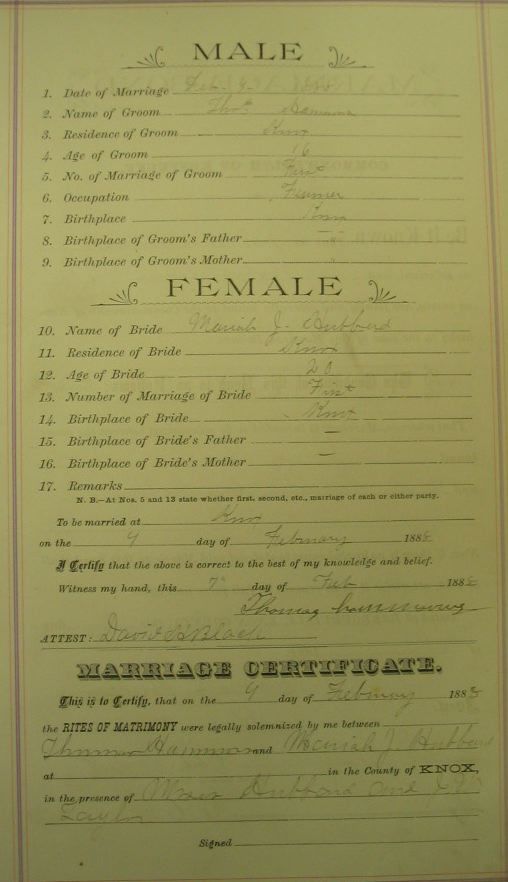 MALE
1. Date of Marriage Feb. 9 188
2. Name of Groom Thos
3. Residence of Groom Knox
4. Age of Groom 16
5. No. of Marriage of Groom First
6. Occupation Farmer
7. Birthplace Knox
8. Birthplace of Groom's Father
9. Birthplace of Groom's Mother
FEMALE
10. Name of Bride Mariah J. Hubbard
11. Residence of Bride Knox
12. Age of Bride 20
13. Number of Marriage of Bride First
14. Birthplace of Bride Knox
15. Birthplace of Bride's Father —
16. Birthplace of Bride's Mother —
17. Remarks
N. B.—At Nos. 5 and 13 state whether first, second, etc., marriage of each or either party.
To be married at Knox
on the 9 day of February 188
I Certify that the above is correct to the best of my knowledge and belief.
Witness my hand, this 7 day of Feb 188
Thomas
ATTEST: David Black
MARRIAGE CERTIFICATE.
This is to Certify, that on the 9 day of February 188
the RITES OF MATRIMONY were legally solemnized by me between
and Mariah J. Hubbard
at in the County of KNOX,
in the presence of Hubbard and
Taylor
Signed